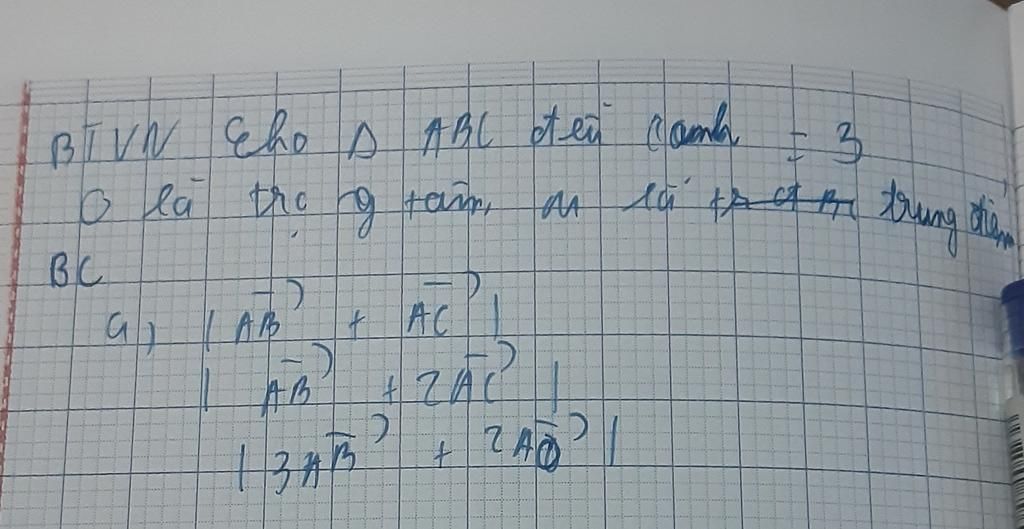 BTVN Cho Δ ABC đều cạnh = 3
O là trọng tâm, M là trung điểm
BC
a, |AB⃗ + AC⃗|
|AB⃗ + 2AC⃗|
|3AB⃗ + 2AO⃗|